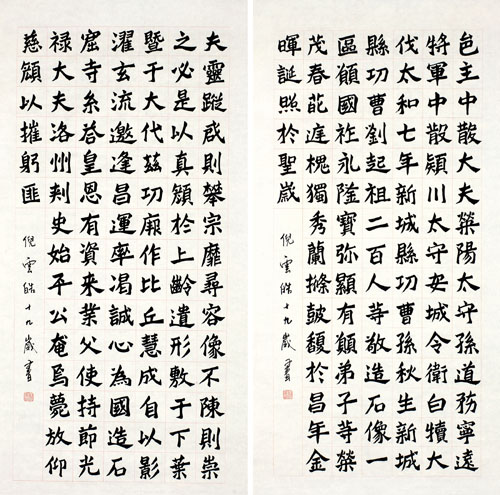 邑主中散大夫滎陽太守孫道務寧遠
將軍中散潁川太守安城令衛白犢大
伐太和七年新城縣功曹孫秋生新城
縣功曹劉起祖二百人等敬造石像一
區願國祚永隆寶彌顯有願弟子等榮
茂春葩庭槐獨秀蘭條鼓馥於昌年金
暉誕照於聖歲
倪雲皓十九歲書
夫靈蹤咸則攀宗靡尋容像不陳則崇
之必是以真顏於上齡遺形敷于下葉
暨于大代茲功厥作比丘慧成自以影
濯玄流邀逢昌運率渴誠心為國造石
窟寺糸答皇恩有資來業父使持節光
祿大夫洛州刺史始平公奄焉薨放仰
慈顏以摧躬匪
倪雲皓十九歲書